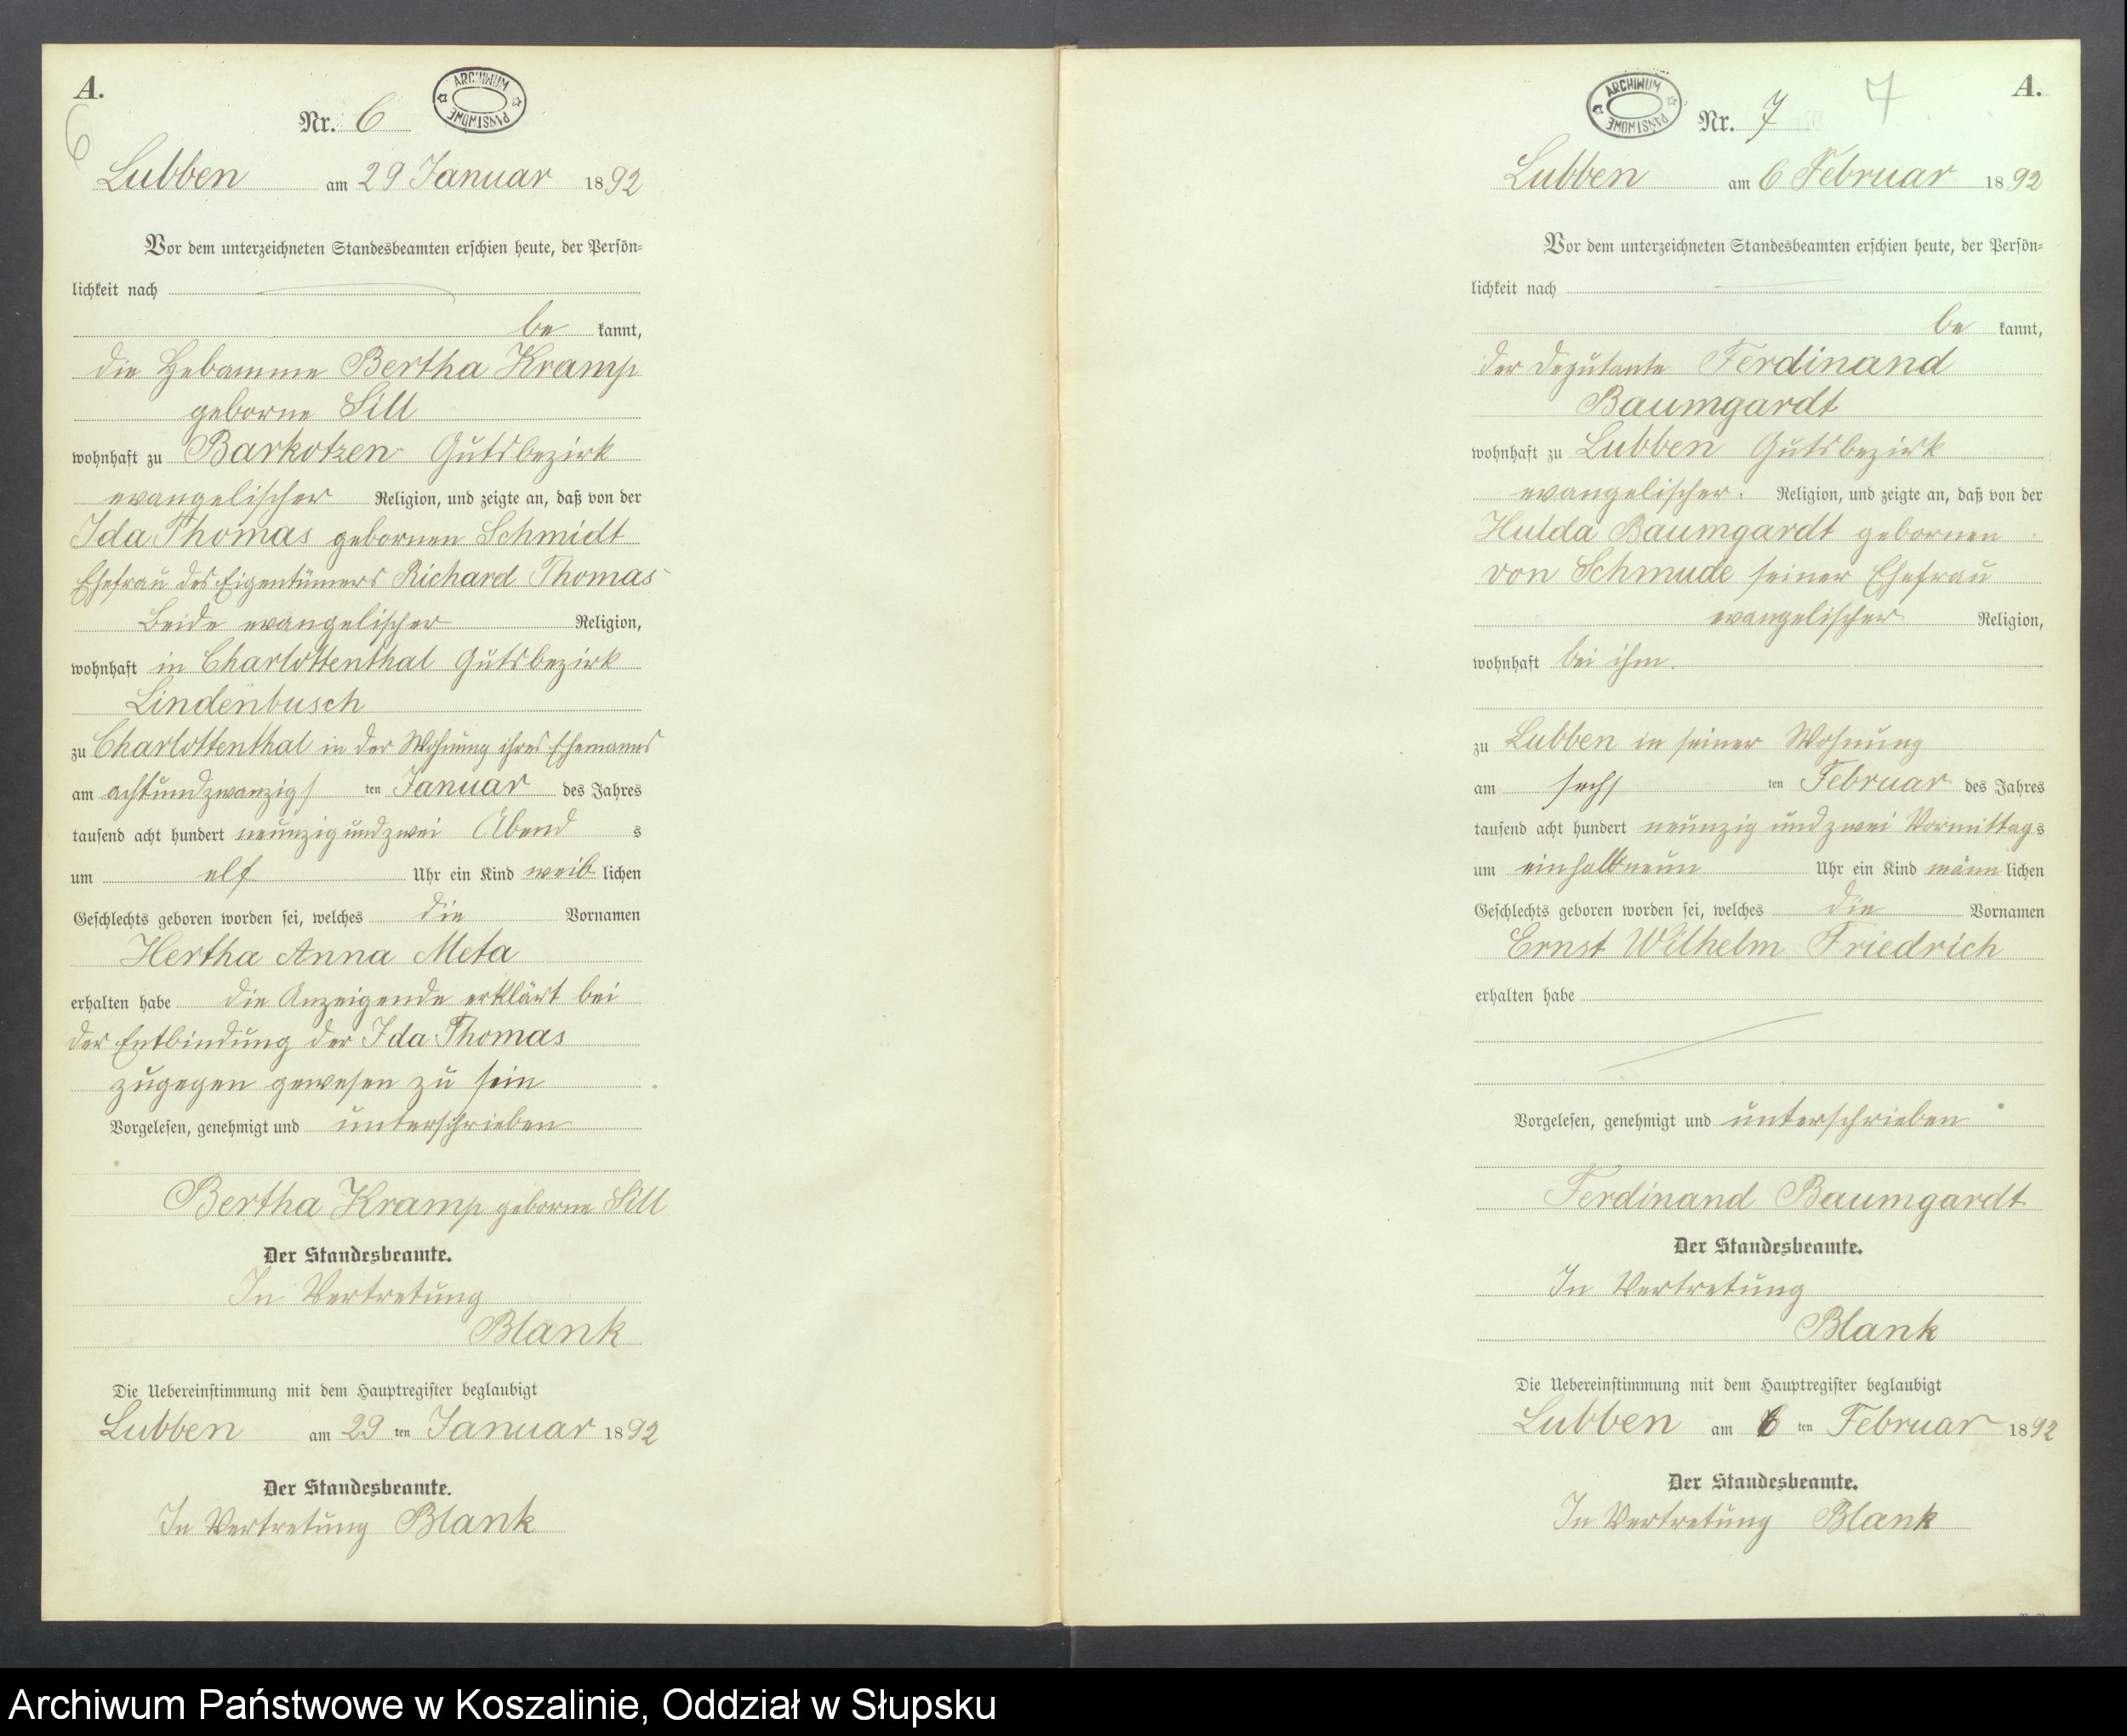 A.
6
Nr. 6
ARCHIWUM PAŃSTWOWE
Lubben am 29 Januar 1892
Vor dem unterzeichneten Standesbeamten erschien heute, der Persön-
lichkeit nach
be kannt,
die Hebamme Bertha Kramp
geborne Sill
wohnhaft zu Barkotzen Gutsbezirk
evangelischer Religion, und zeigte an, daß von der
Ida Thomas gebornen Schmidt
Ehefrau des Eigentümers Richard Thomas
Beide evangelischer Religion,
wohnhaft in Charlottenthal Gutsbezirk
Lindenbusch
zu Charlottenthal in der Wohnung ihres Ehemanns
am achtundzwanzigs ten Januar des Jahres
tausend acht hundert neunzig und zwei Abend s
um elf Uhr ein Kind weib lichen
Geschlechts geboren worden sei, welches die Vornamen
Hertha Anna Meta
erhalten habe die Anzeigende erklärt bei
der Entbindung der Ida Thomas
zugegen gewesen zu sein
Vorgelesen, genehmigt und unterschrieben
Bertha Kramp geborne Sill
Der Standesbeamte.
In Vertretung
Blank
Die Uebereinstimmung mit dem Hauptregister beglaubigt
Lubben am 29 ten Januar 1892
Der Standesbeamte.
In Vertretung Blank
A.
7
ARCHIWUM PAŃSTWOWE
Nr. 7
Lubben am 6 Februar 1892
Vor dem unterzeichneten Standesbeamten erschien heute, der Persön-
lichkeit nach
be kannt,
der Deputante Ferdinand
Baumgardt
wohnhaft zu Lubben Gutsbezirk
evangelischer Religion, und zeigte an, daß von der
Hulda Baumgardt gebornen
von Schmude seiner Ehefrau
evangelischer Religion,
wohnhaft bei ihm.
zu Lubben in seiner Wohnung
am sechs ten Februar des Jahres
tausend acht hundert neunzig und zwei Vormittag s
um einhalbneun Uhr ein Kind männ lichen
Geschlechts geboren worden sei, welches die Vornamen
Ernst Wilhelm Friedrich
erhalten habe
Vorgelesen, genehmigt und unterschrieben
Ferdinand Baumgardt
Der Standesbeamte.
In Vertretung
Blank
Die Uebereinstimmung mit dem Hauptregister beglaubigt
Lubben am 6 ten Februar 1892
Der Standesbeamte.
In Vertretung Blank
Archiwum Państwowe w Koszalinie, Oddział w Słupsku